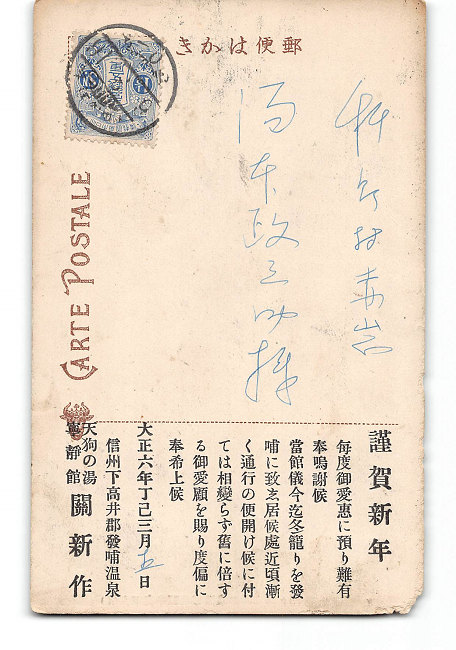 郵便はかき
CARTE POSTALE
湯本政之助様
謹賀新年
毎度御愛惠に預り難有
奉鳴謝候
當館儀今迄冬籠りを發
哺に致ゐ居候處近頃漸
く通行の便開け候に付
ては相變らず舊に倍す
る御愛顧を賜り度偏に
奉希上候
大正六年丁己三月五日
信州下高井郡發哺温泉
天狗の湯
寧靜館
關新作